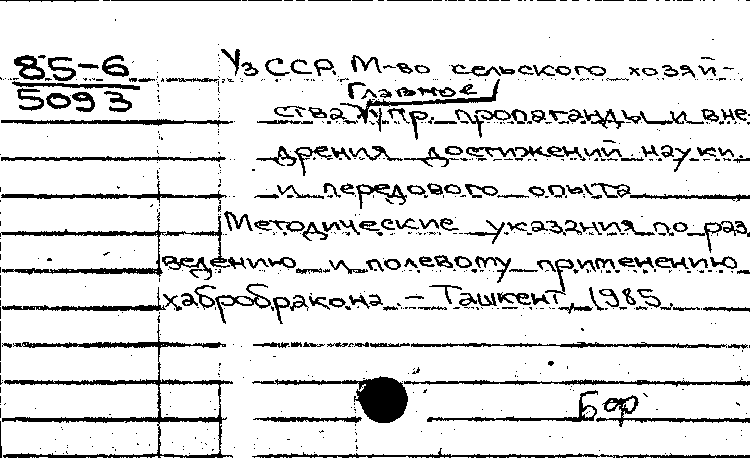 85-6
5093
УзССР. М-во сельского хозяй-
Главное
ства упр. пропаганды и вне
дрения достижений науки.
и передового опыта
Методические указания по раз
ведению и полевому применению
хабробракона. – Ташкент, 1985.
Бор